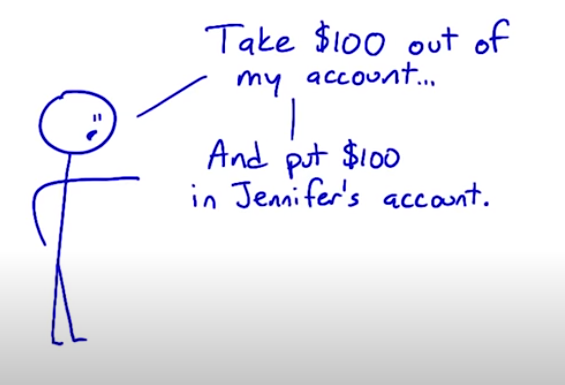 Take $100 out of
my account...
And put $100
in Jennifer's account.